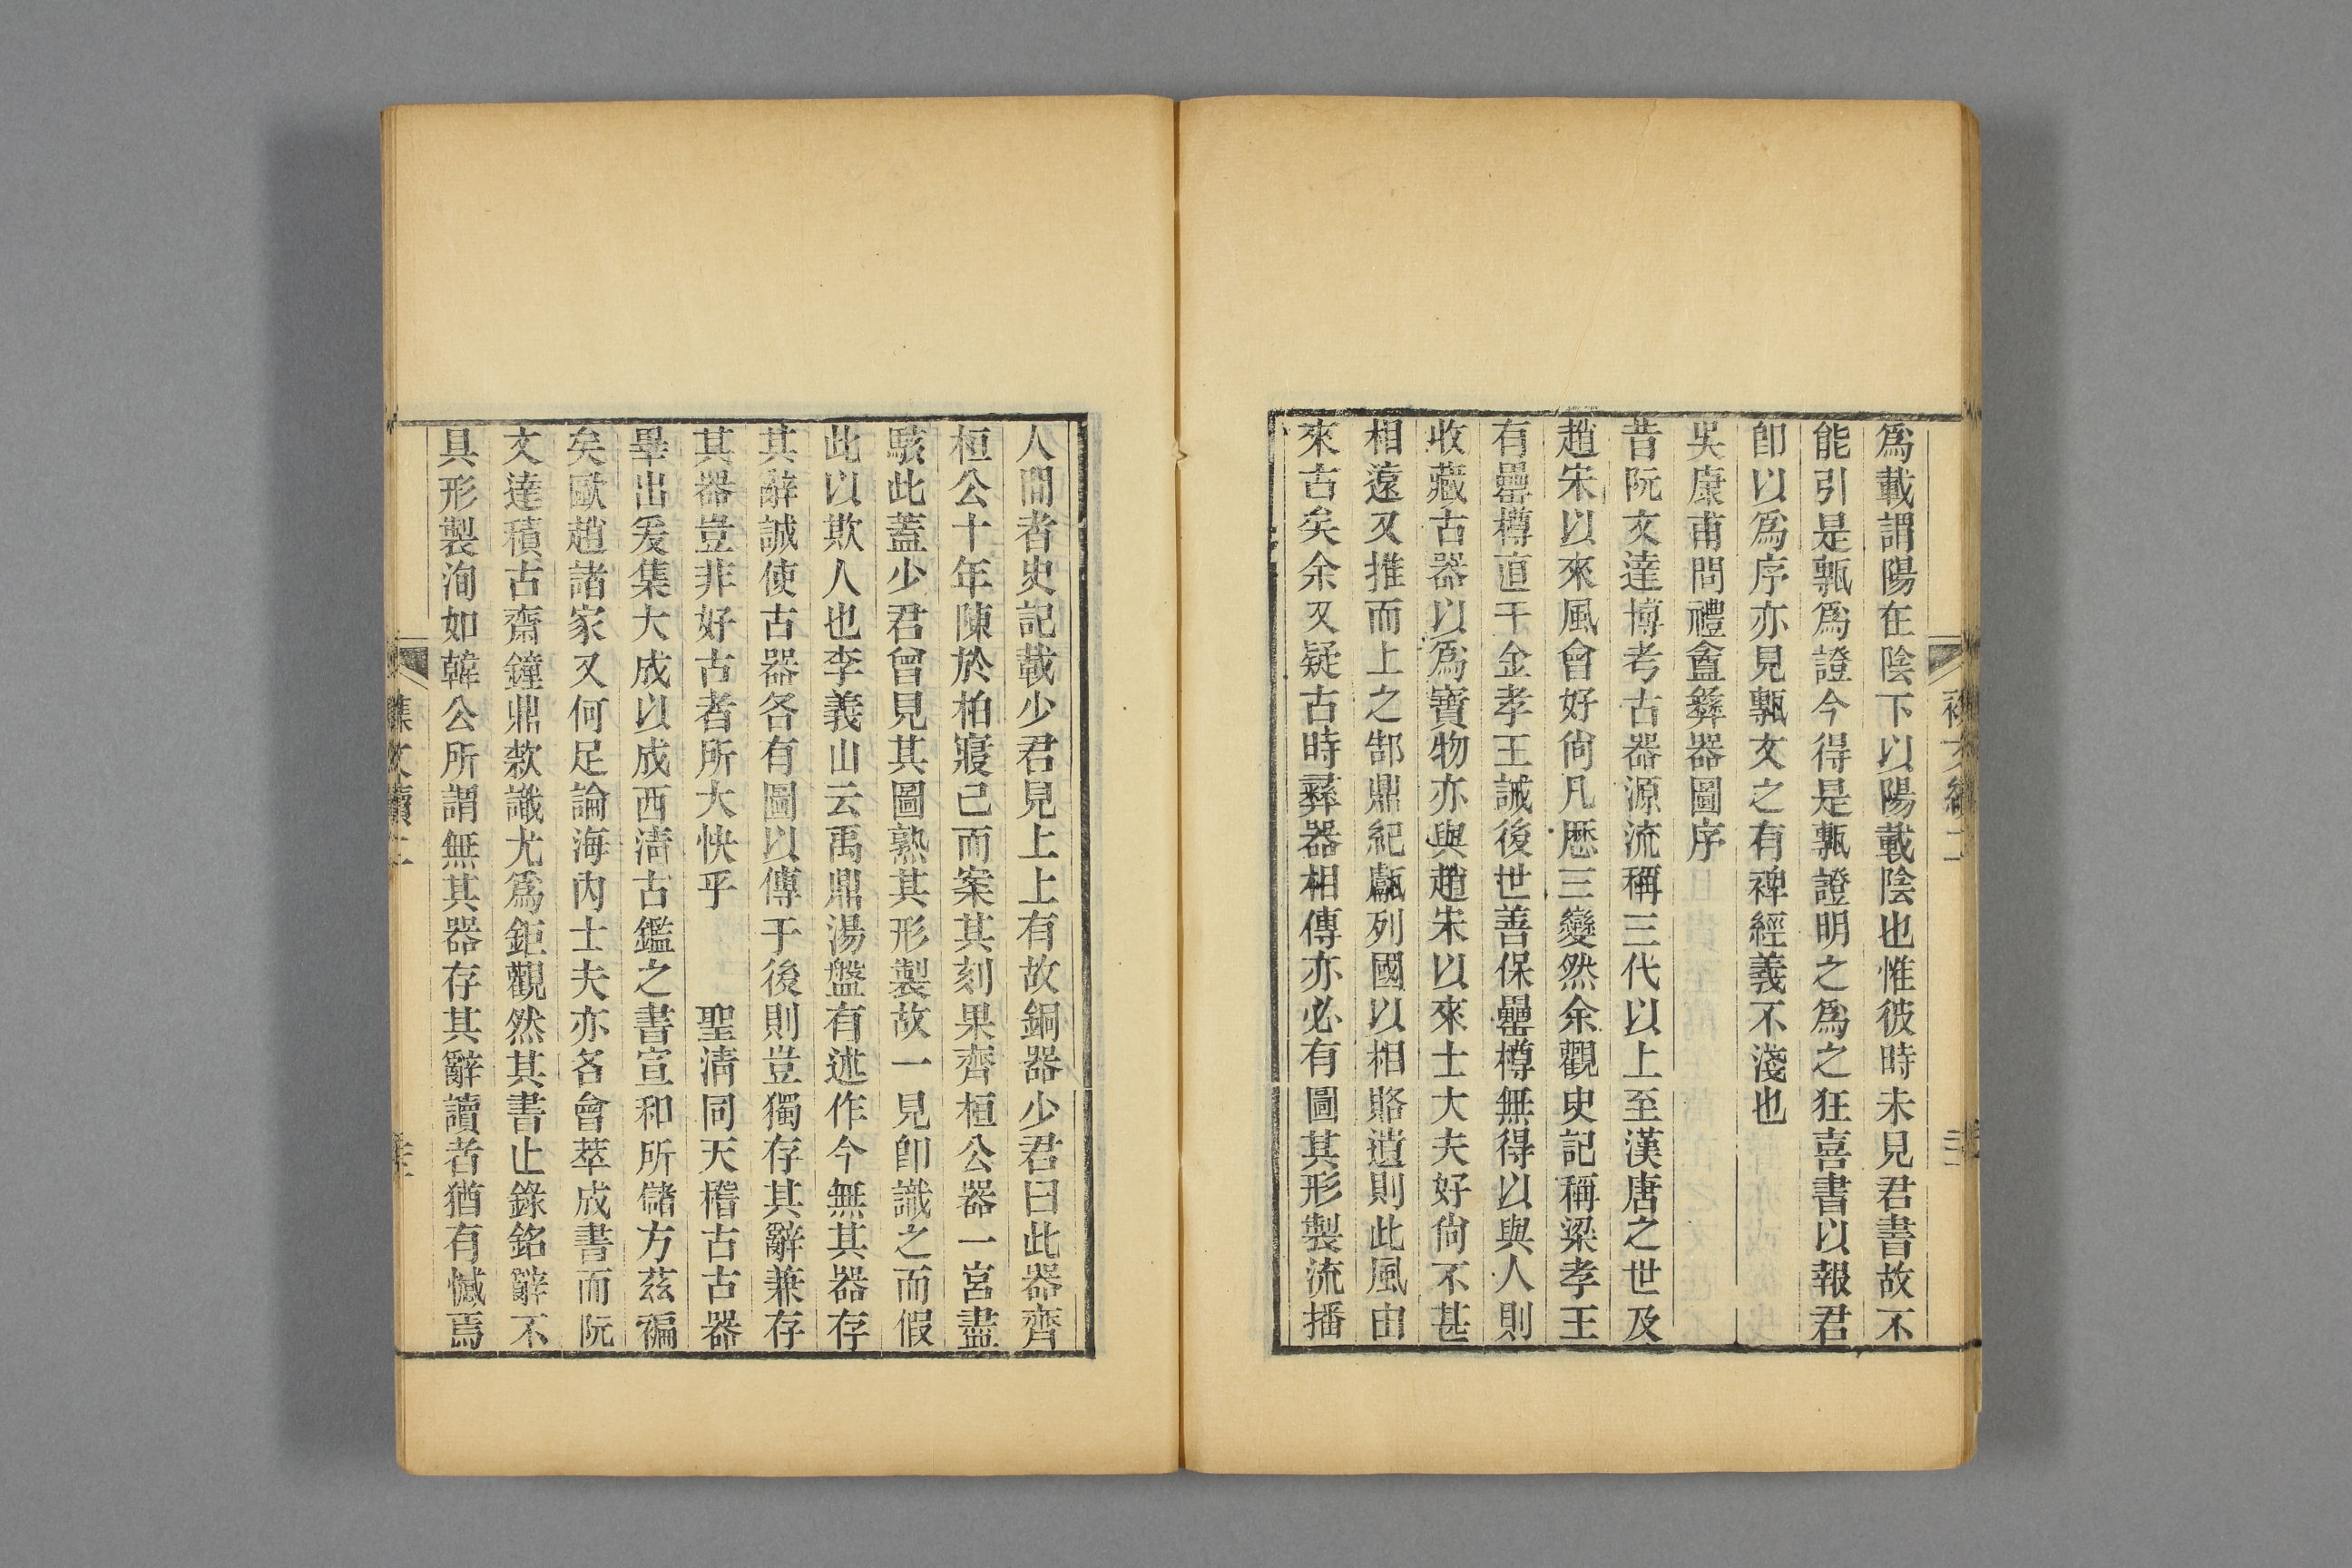 爲載謂陽在陰下以陽載陰也惟彼時未見君書故不
能引是甎爲證今得是甎證明之爲之狂喜書以報君
卽以爲序亦見甎文之有裨經義不淺也
吳康甫問禮盦彝器圖序
昔阮文達博考古器源流稱三代以上至漢唐之世及
趙宋以來風會好尙凡歷三變然余觀史記稱梁孝王
有罍樽直千金孝王誡後世善保罍樽無得以與人則
收藏古器以爲寶物亦與趙宋以來士大夫好尙不甚
相遠又推而上之郜鼎紀甗列國以相賂遺則此風由
來古矣余又疑古時彝器相傳亦必有圖其形製流播
人間者史記載少君見上上有故銅器少君曰此器齊
桓公十年陳於柏寢已而案其刻果齊桓公器一宮盡
駭此蓋少君曾見其圖熟其形製故一見卽識之而假
此以欺人也李義山云禹鼎湯盤有述作今無其器存
其辭誠使古器各有圖以傳于後則豈獨存其辭兼存
其器豈非好古者所大快乎 聖淸同天稽古古器
畢出爰集大成以成西淸古鑑之書宣和所儲方茲褊
矣歐趙諸家又何足論海內士夫亦各會萃成書而阮
文達積古齋鐘鼎款識尤爲鉅觀然其書止錄銘辭不
具形製洵如韓公所謂無其器存其辭讀者猶有憾焉